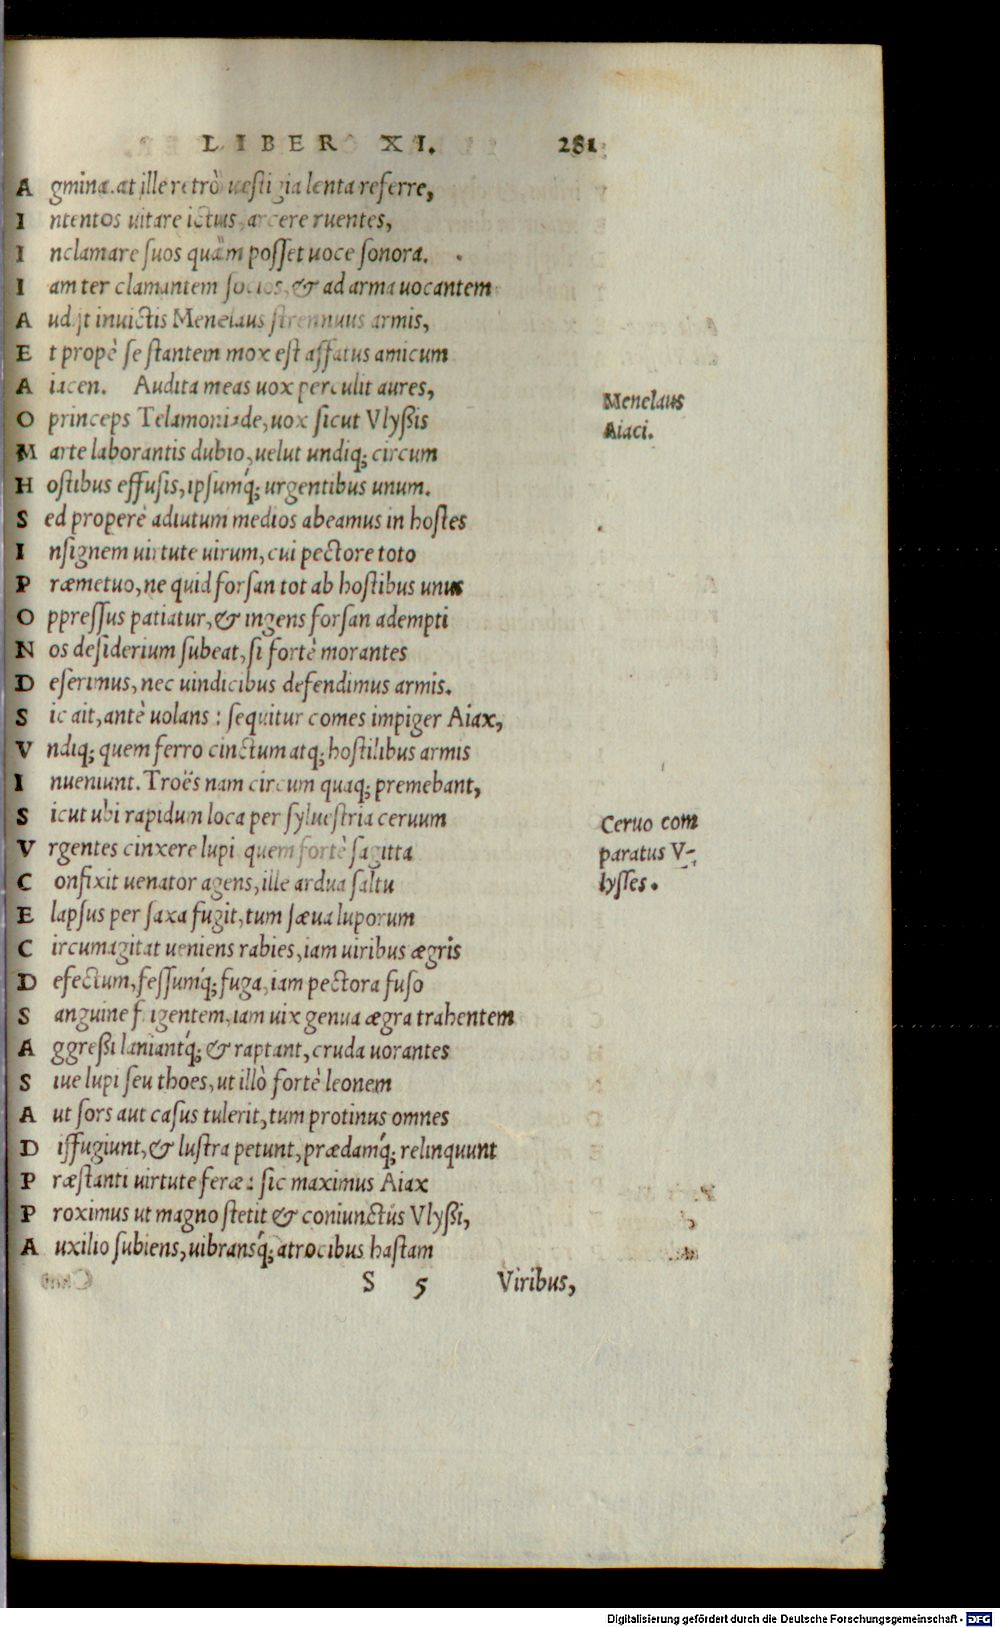 LIBER XI. 281
Agmina. at ille retrò uestigia lenta referre,
Intentos uitare ictus, arcere ruentes,
Inclamare suos quàm posset uoce sonora.
Iam ter clamantem socios, & ad arma uocantem
Audijt inuictis Menelaus strennuus armis,
Et propè se stantem mox est affatus amicum
Aiacen. Audita meas uox perculit aures,
O princeps Telamoniade, uox sicut Vlyßis
Marte laborantis dubio, uelut undiq; circum
Hostibus effusis, ipsumq́; urgentibus unum.
Sed properè adiutum medios abeamus in hostes
Insignem uirtute uirum, cui pectore toto
Præmetuo, ne quid forsan tot ab hostibus unus
Oppressus patiatur, & ingens forsan adempti
Nos desiderium subeat, si fortè morantes
Deserimus, nec uindicibus defendimus armis.
Sic ait, antè uolans : sequitur comes impiger Aiax,
Vndiq; quem ferro cinctum atq; hostilibus armis
Inueniunt. Troës nam circum quaq; premebant,
Sicut ubi rapidum loca per syluestria ceruum
Vrgentes cinxere lupi quem fortè sagitta
Confixit uenator agens, ille ardua saltu
Elapsus per saxa fugit, tum sæua luporum
Circumagitat ueniens rabies, iam uiribus ægris
Defectum, fessumq́; fuga, iam pectora fuso
Sanguine frigentem, iam uix genua ægra trahentem
Aggreßi laniantq́; & raptant, cruda uorantes
Siue lupi seu thoes, ut illò fortè leonem
Aut sors aut casus tulerit, tum protinus omnes
Diffugiunt, & lustra petunt, prædamq́; relinquunt
Præstanti uirtute feræ : sic maximus Aiax
Proximus ut magno stetit & coniunctus Vlyßi,
Auxilio subiens, uibransq́; atrocibus hastam
S 5 Viribus,
Menelaus
Aiaci.
Ceruo com
paratus V-
lysses.
Digitalisierung gefördert durch die Deutsche Forschungsgemeinschaft - DFG